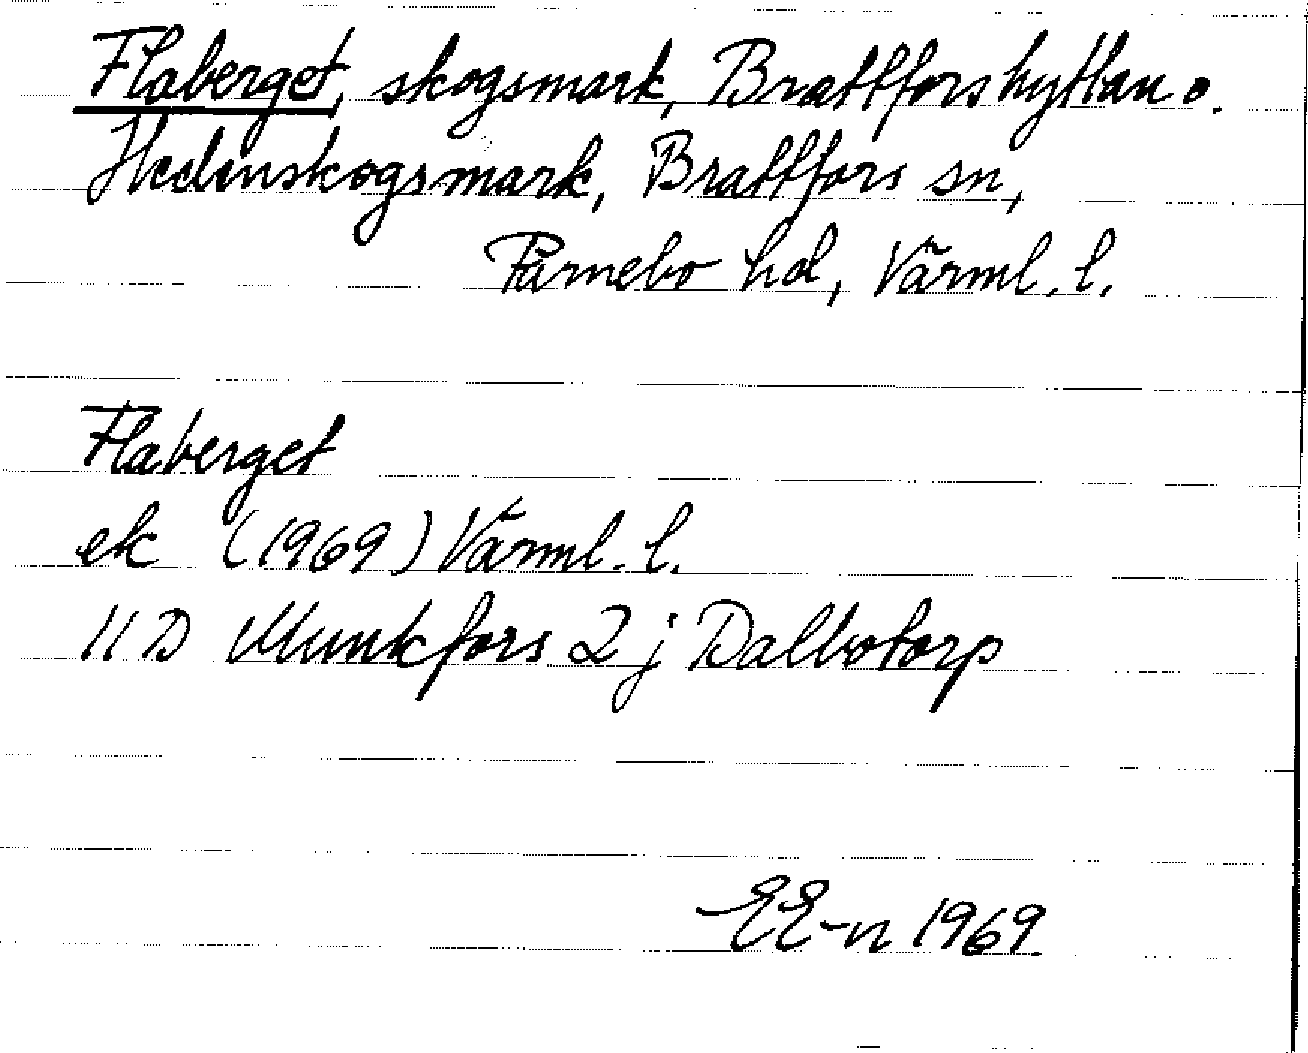 Flaberget, skogsmark, Brattforshyttan o.
Hedenskogsmark, Brattfors sn,
Färnebo hd, Värml. l.
Flaberget
ek (1969) Värml. l.
11 D Munkfors 2 j Dalbotorp
EE-n 1969